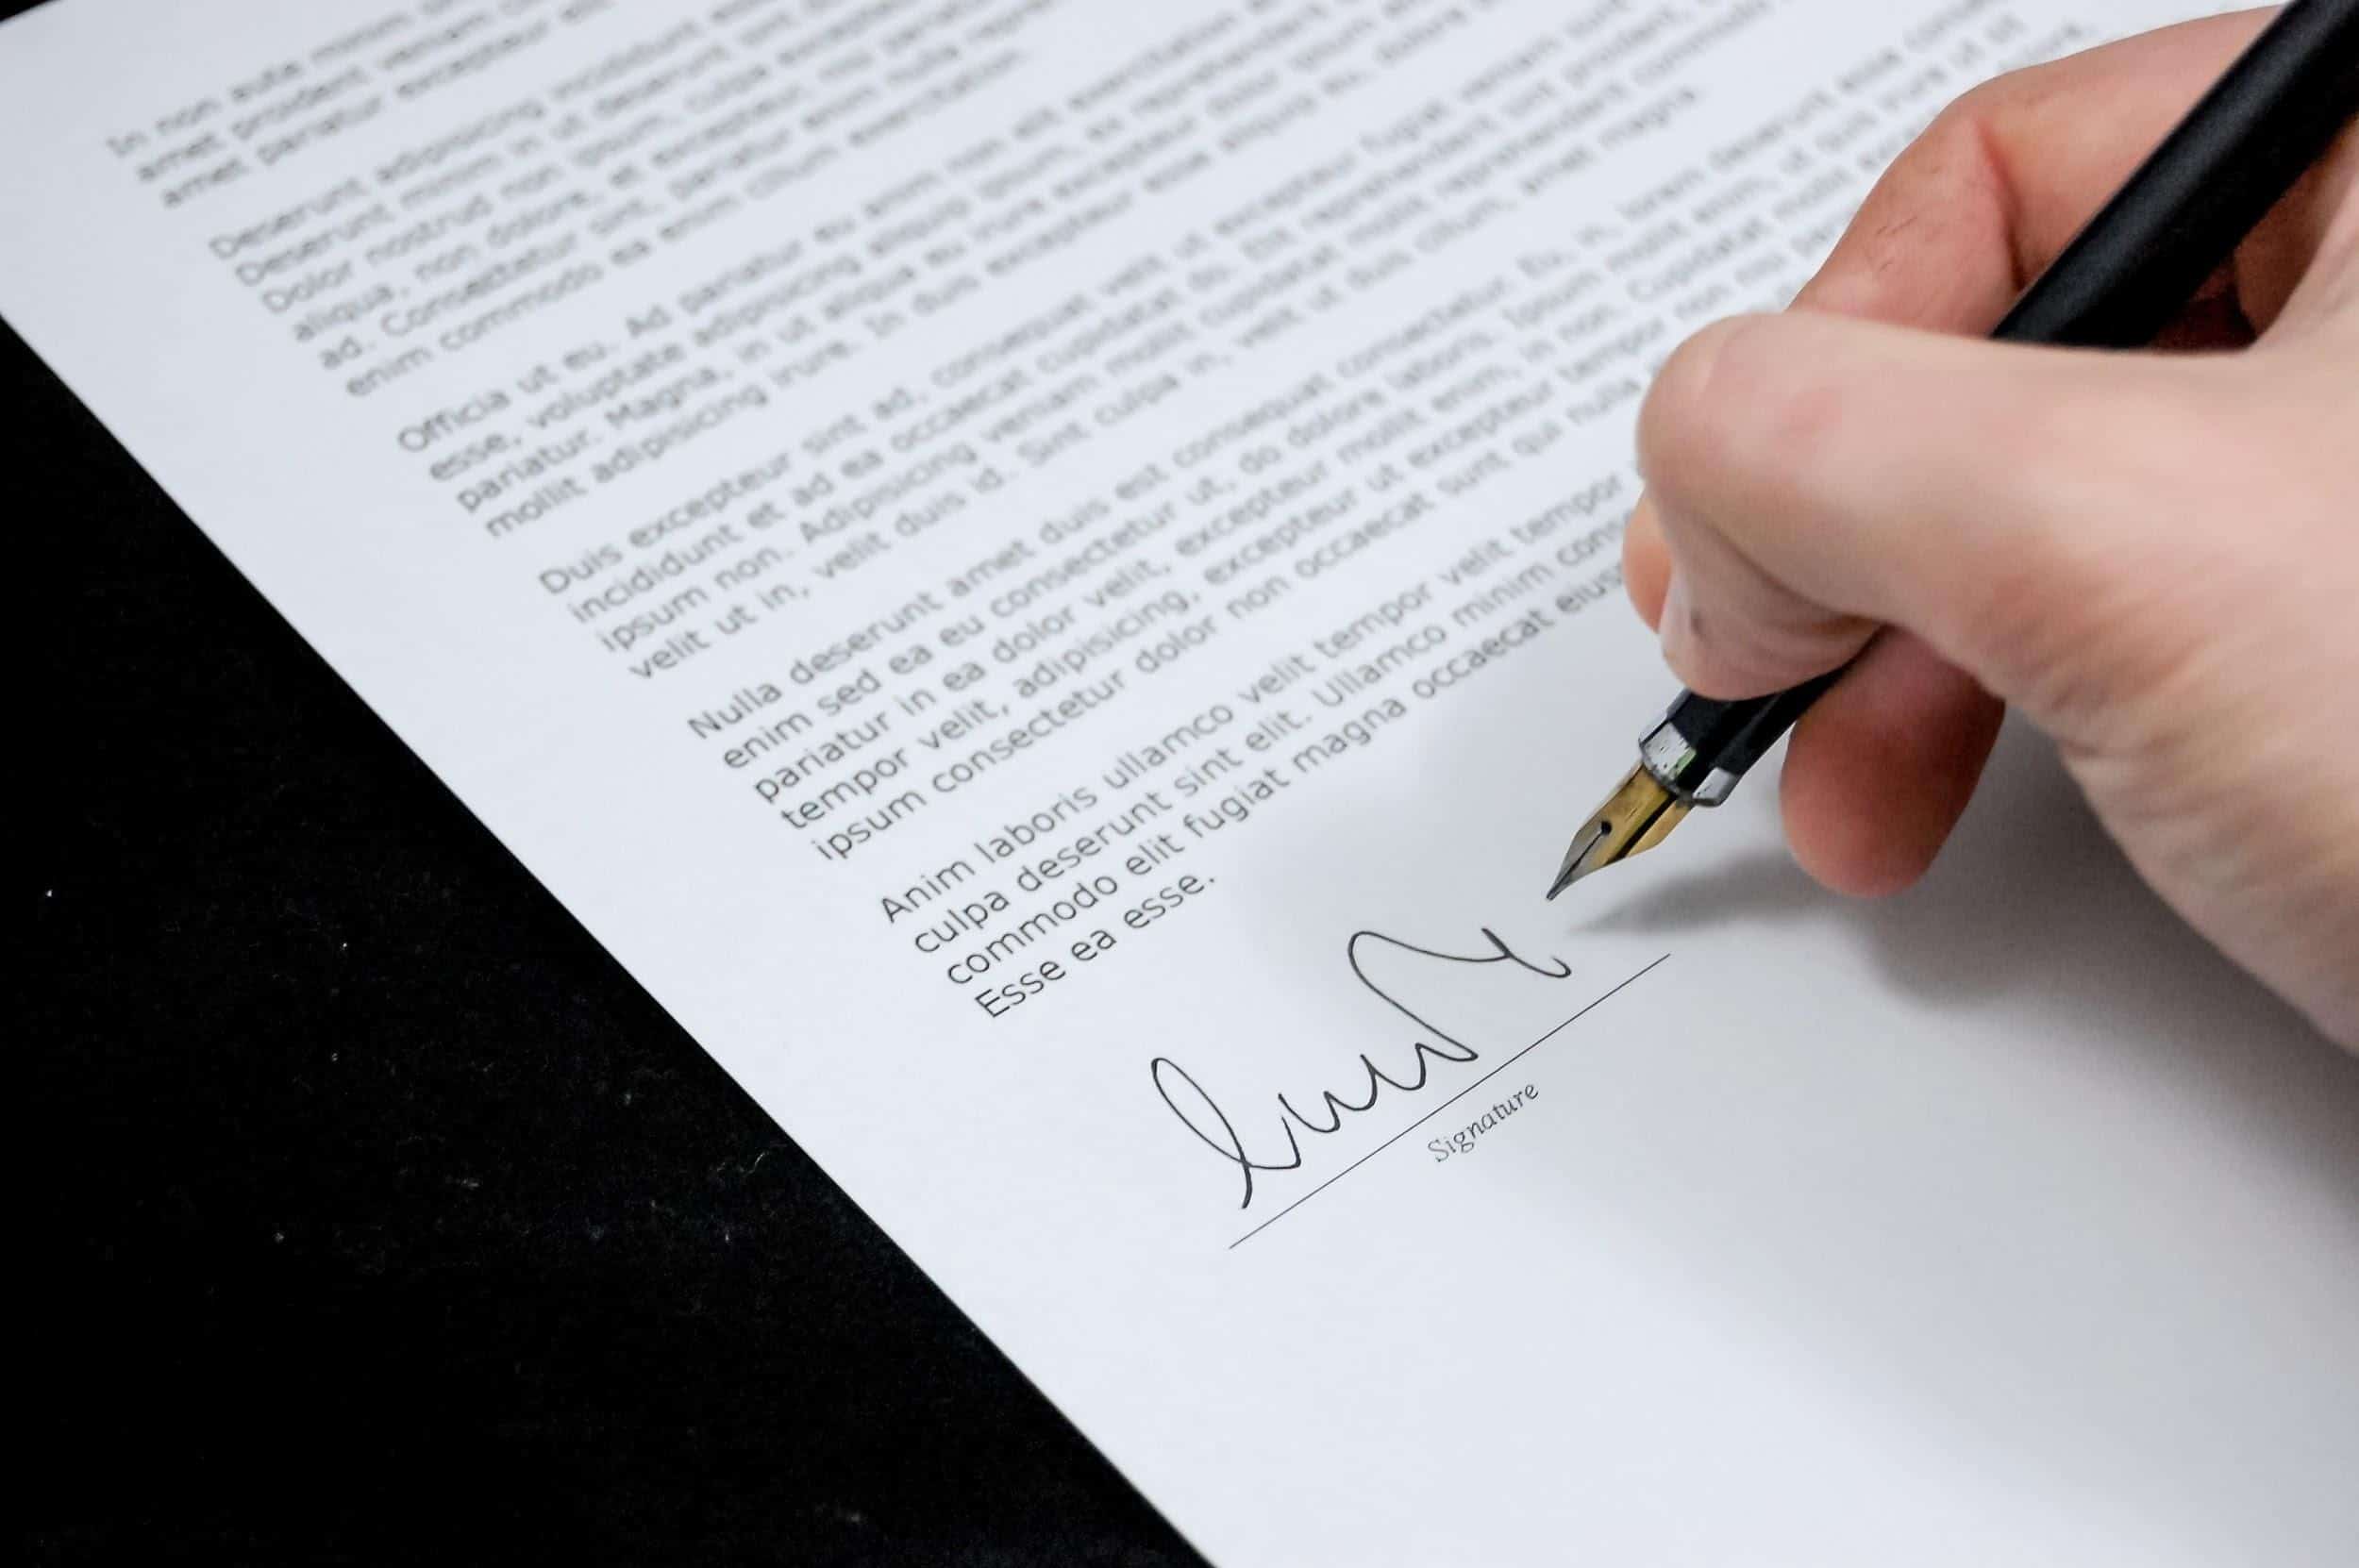 In non aute minim
amet proident veniam
amet pariatur excepteur
Deserunt adipisicing incididunt
Deserunt minim in ut deserunt
Dolor nostrud non ipsum, culpa
aliqua, non dolore, et excepteur, nisi
ad. Consectetur sint, pariatur enim nulla
enim commodo ea enim cillum exercitation.
Officia ut eu. Ad pariatur eu anim non elit exercitation
esse, voluptate adipisicing aliquip ipsum, ex reprehenderit
pariatur. Magna, in ut aliqua eu irure excepteur dolor ipsum
mollit adipisicing irure. In duis excepteur esse aliquip eu, dolore
Duis excepteur sint ad, consequat velit ut excepteur fugiat veniam sunt
incididunt et ad ea occaecat cupidatat do. Est reprehenderit sint proident,
ipsum non. Adipisicing veniam mollit cupidatat mollit reprehenderit commodo
velit ut in, velit duis id. Sint culpa in, velit ut duis cillum, amet magna.
Nulla deserunt amet duis est consequat consectetur. Eu, in, lorem deserunt esse
enim sed ea eu consectetur ut, do dolore laboris. Ipsum mollit anim, ut quis irure ut sit
pariatur in ea dolor velit, excepteur mollit enim, in non. Cupidatat mollit
tempor velit, adipisicing, excepteur ut excepteur tempor non nisi
ipsum consectetur dolor non occaecat sunt qui nulla
Anim laboris ullamco velit tempor velit tempor
culpa deserunt sint elit. Ullamco minim cons
commodo elit fugiat magna occaecat eius
Esse ea esse.
Signature